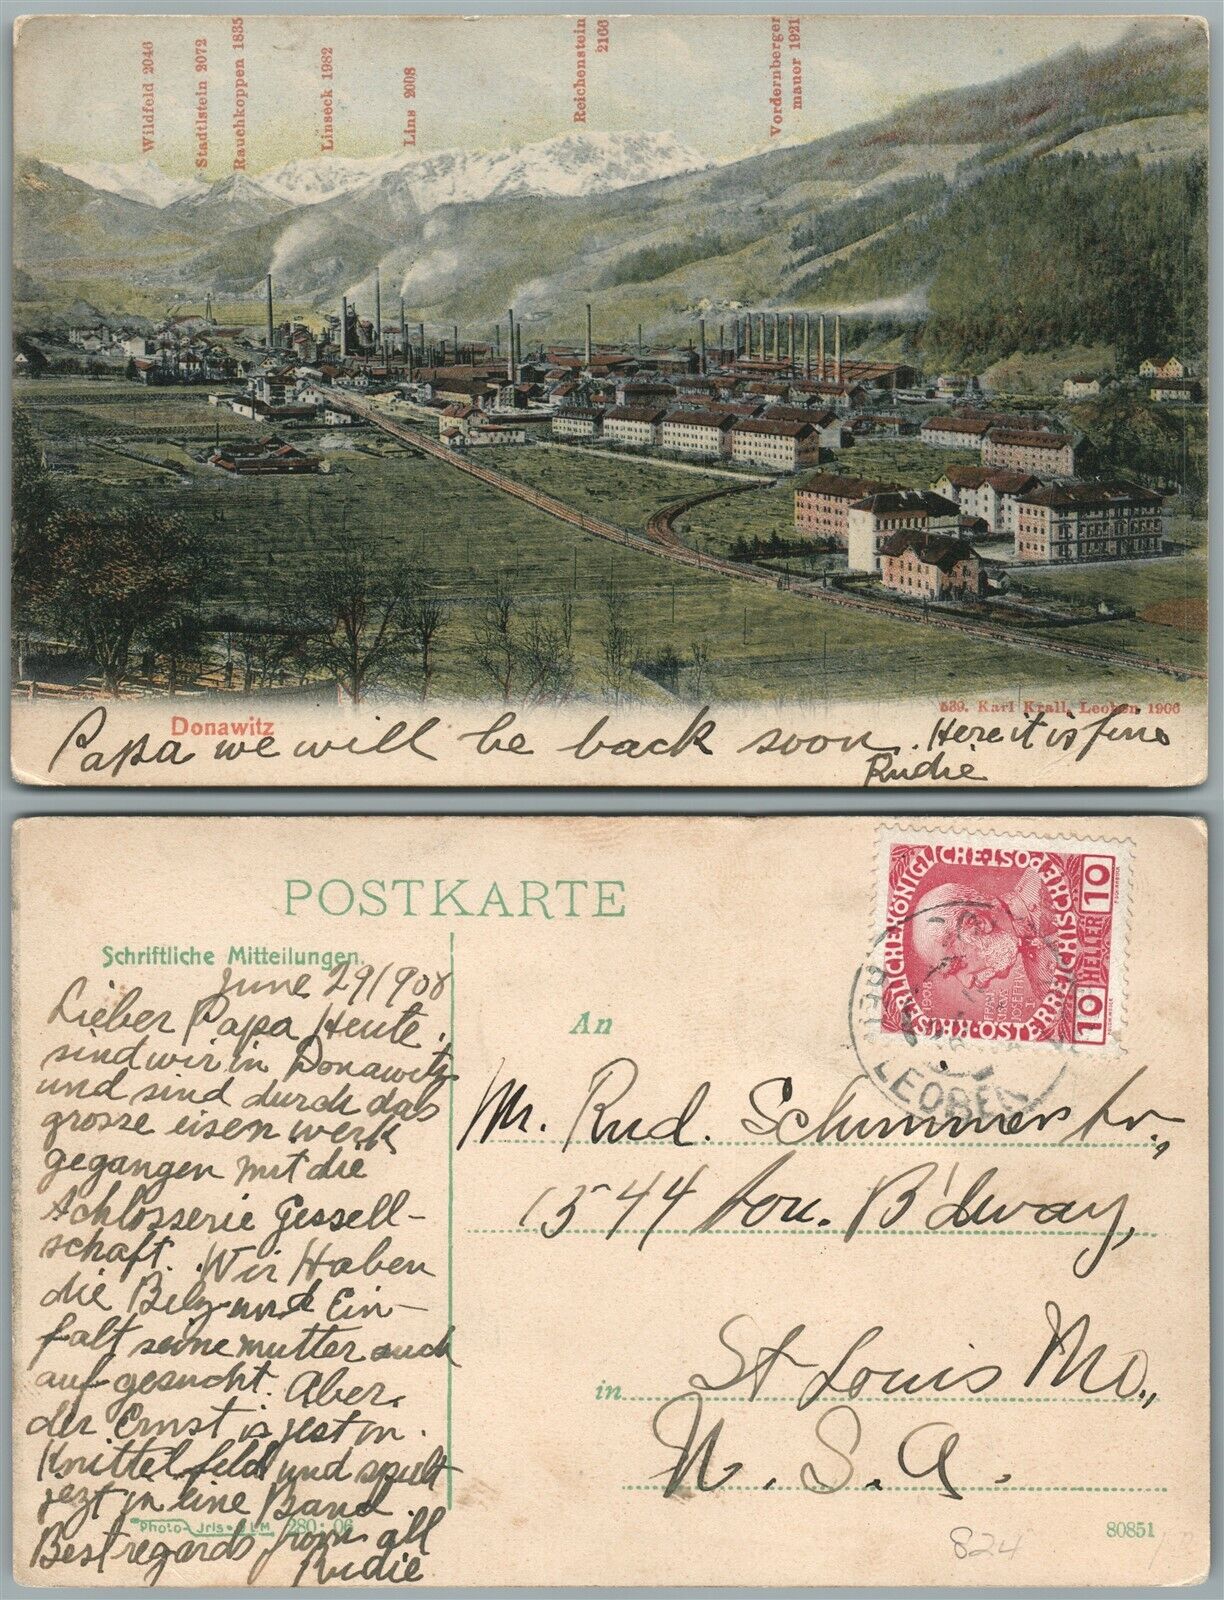 Wildfeld 2046
Stadtlstein 2072
Rauchkoppen 1835
Linseck 1982
Lins 2008
Reichenstein
2166
Vordernberger
mauer 1921
Donawitz
539. Karl Krall, Leoben 1906
Papa we will be back soon. Here it is fine
Rudie
POSTKARTE
Schriftliche Mitteilungen.
June 29/908
Lieber Papa Heute
sind wir in Donawitz
und sind durch das
grosse eisen werk
gegangen mit die
Schlosserie Gessell-
schaft. Wir Haben
die Bilz und Ein-
falt seine mutter auch
auf gesucht. Aber
der Ernst is jest in
Knittelfeld und spielt
jezt in eine Band
Best regards from all
Rudie
Photo-Iris-
280 · 06
An
Mr. Rud. Schimmer
1544 Sou. B'dway,
in St Louis Mo.,
U. S. A.
80851
824
KAISERLICHE KÖNIGLICHE ÖSTERREICHISCHE POST
10 HELLER 10
1908
FRANZ
JOSEF I
LEOBEN